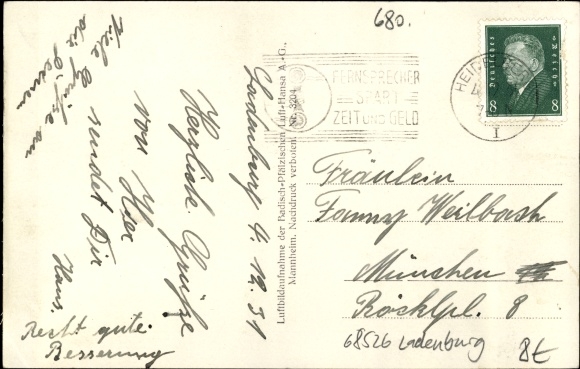 680.
Ladenburg 4. 12. 31
Herzliche Grüße
von Hier
sendet Dir
Hans.
Viele Grüße an
die
Recht gute
Besserung
Luftbildaufnahme der Badisch-Pfälzischen Luft-Hansa A.-G.,
Mannheim. Nachdruck verboten. № 3204
FERNSPRECHER
SPART
ZEIT UND GELD
HEIDE
I
Deutsches Reich
8 8
Fräulein
Fanny Weilbach
München
Röcklpl. 8
68526 Ladenburg
8€